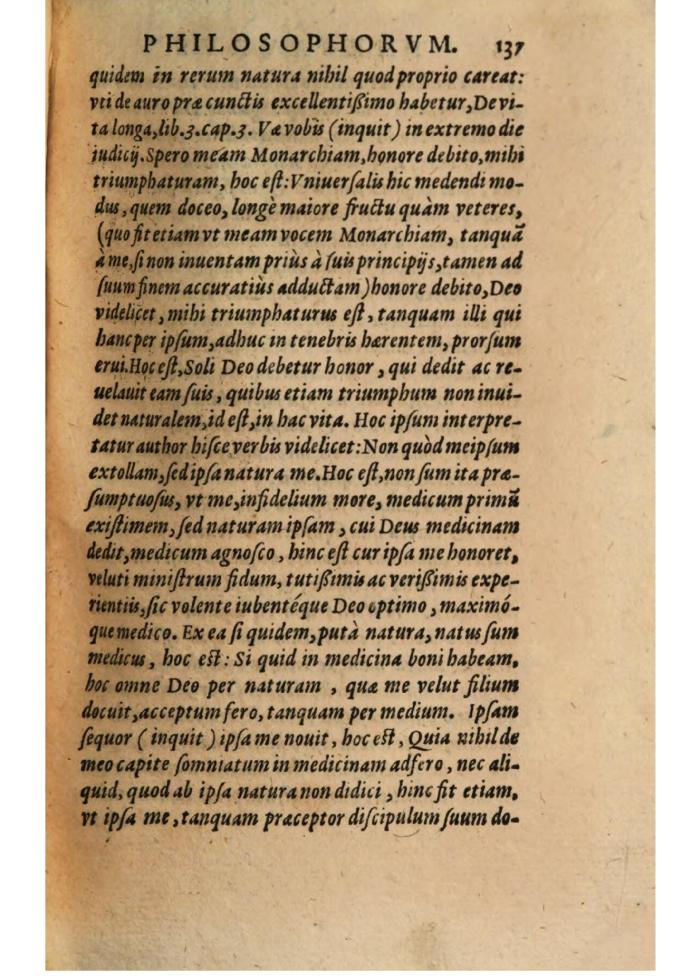 PHILOSOPHORVM. 137
quidem in rerum natura nihil quod proprio careat:
vti de auro præ cunctis excellentißimo habetur, De vi-
ta longa, lib. 3. cap. 3. Væ vobis (inquit) in extremo die
judicij. Spero meam Monarchiam, honore debito, mihi
triumphaturam, hoc eſt: Vniuerſalis hic medendi mo-
dus, quem doceo, longè maiore fructu quàm veteres,
(quo fit etiam vt meam vocem Monarchiam, tanquã
à me, ſi non inuentam priùs à ſuis principijs, tamen ad
ſuum finem accuratiùs adductam) honore debito, Deo
videlicet, mihi triumphaturus eſt, tanquam illi qui
hanc per ipſum, adhuc in tenebris hærentem, prorſum
erui. Hoc eſt, Soli Deo debetur honor, qui dedit ac re-
uelauit eam ſuis, quibus etiam triumphum non inui-
det naturalem, id eſt, in hac vita. Hoc ipſum interpre-
tatur author hiſce verbis videlicet: Non quòd meipſum
extollam, ſed ipſa natura me. Hoc eſt, non ſum ita præ-
ſumptuoſus, vt me, infidelium more, medicum primũ
exiſtimem, ſed naturam ipſam, cui Deus medicinam
dedit, medicum agnoſco, hinc eſt cur ipſa me honoret,
veluti miniſtrum fidum, tutißimis ac verißimis expe-
rientiis, ſic volente iubentéque Deo optimo, maximó-
que medico. Ex ea ſi quidem, putà natura, natus ſum
medicus, hoc eſt: Si quid in medicina boni habeam,
hoc omne Deo per naturam, quæ me velut filium
docuit, acceptum fero, tanquam per medium. Ipſam
ſequor (inquit) ipſa me nouit, hoc eſt, Quia nihil de
meo capite ſomniatum in medicinam adfero, nec ali-
quid, quod ab ipſa natura non didici, hinc fit etiam,
vt ipſa me, tanquam præceptor diſcipulum ſuum do-